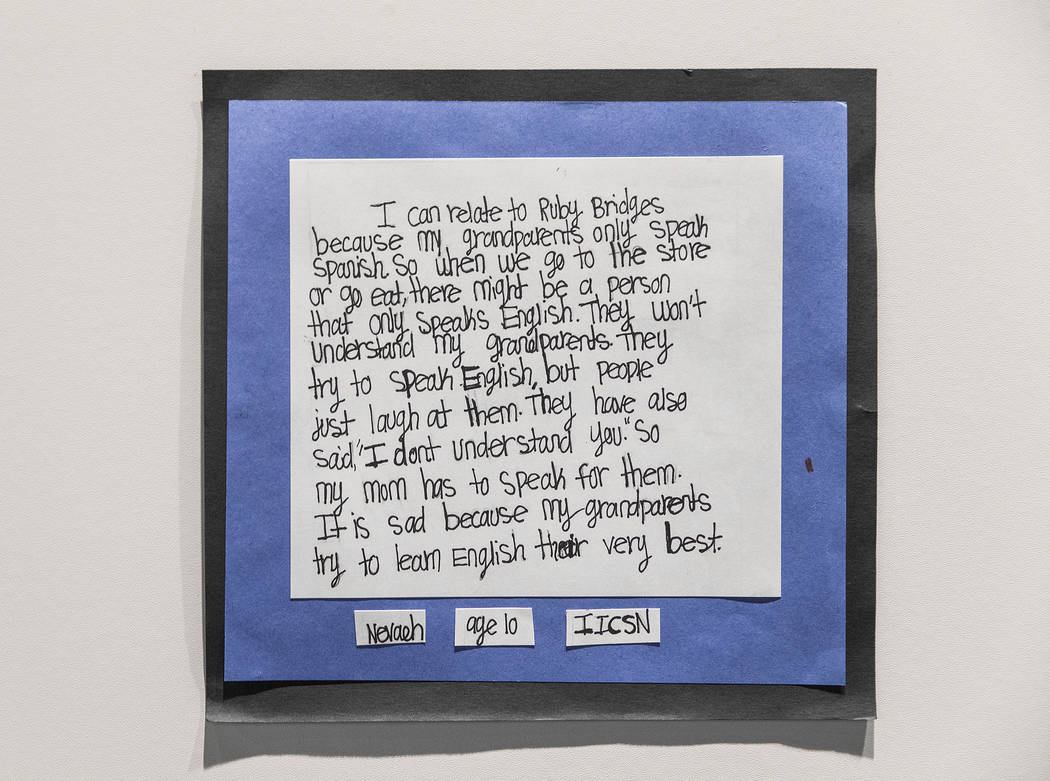 I can relate to Ruby Bridges
because my grandparents only speak
Spanish. So when we go to the store
or go eat, there might be a person
that only speaks English. They won't
understand my grandparents. They
try to speak English, but people
just laugh at them. They have also
said, "I dont understand you." So
my mom has to speak for them.
It is sad because my grandparents
try to learn English their very best.
Nevaeh
age 10
IICSN